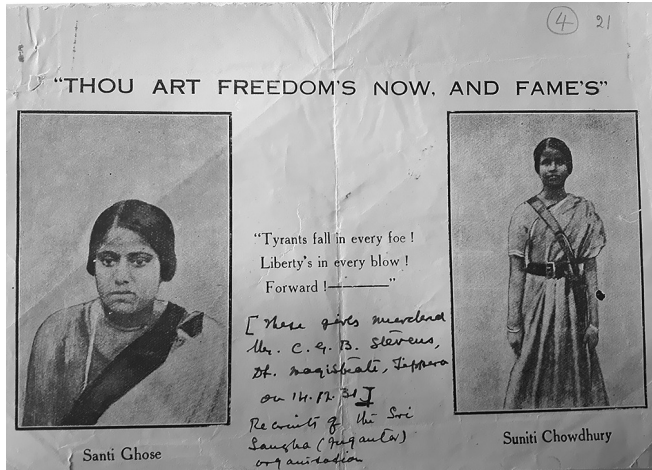 4 21
"THOU ART FREEDOM'S NOW, AND FAME'S"
"Tyrants fall in every foe !
Liberty's in every blow !
Forward !————"
[These girls murdered
Mr. C. G. B. Stevens,
Dt. Magistrate, Tippera
on 14.12.31]
Recruits of the Sri
Sangha (Jugantar)
organisation
Santi Ghose
Suniti Chowdhury